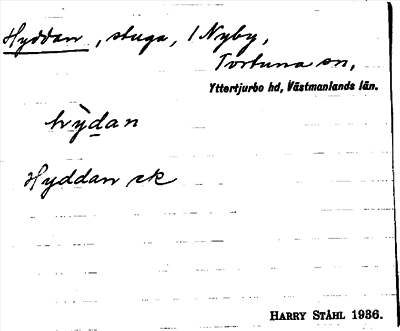 Hyddan, stuga, i Nyby,
Tortuna sn,
Yttertjurbo hd, Västmanlands län.
hỳdan
Hyddan ek
HARRY STÅHL 1936.